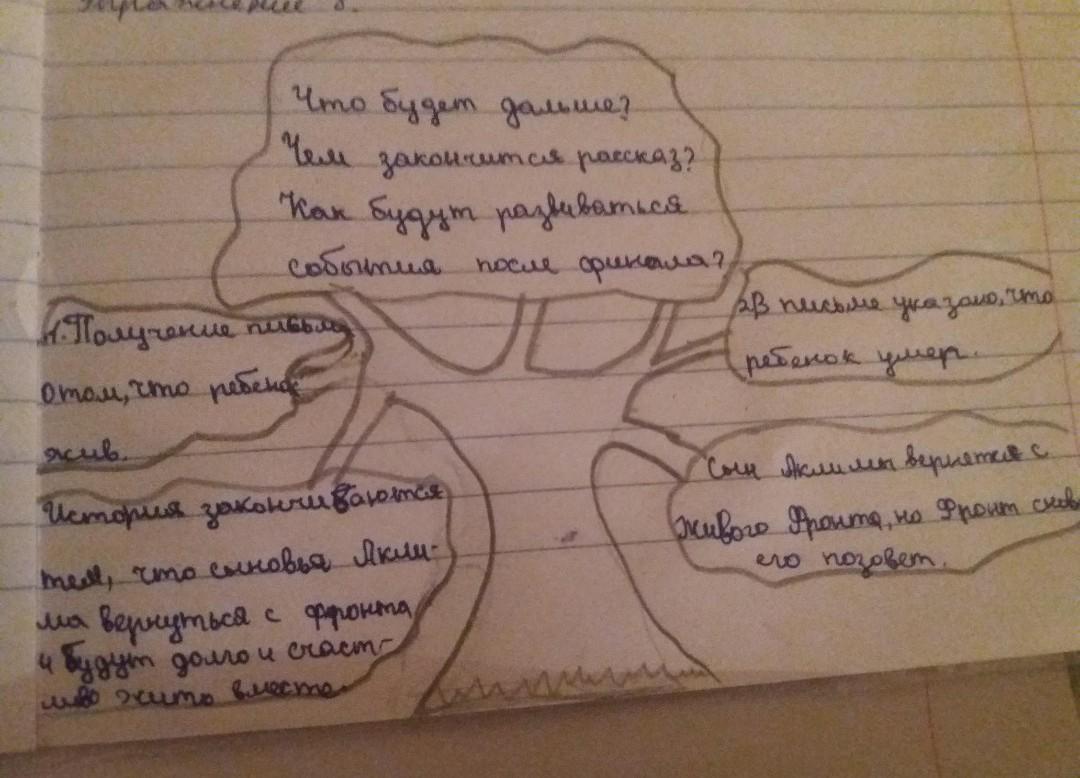 Упражнение 8.
Что будет дальше?
Чем закончится рассказ?
Как будут развиваться
события после финала?
1. Получение письма
о том, что ребенок
жив.
2В письме указано, что
ребенок умер.
История закончиваются
тем, что сыновья Акли-
ма вернуться с ффронта
и будут долго и счаст-
ливо жить вместе.
Сын Аклимы вернятся с
живого Фронта, но Фронт снов
его позовет.